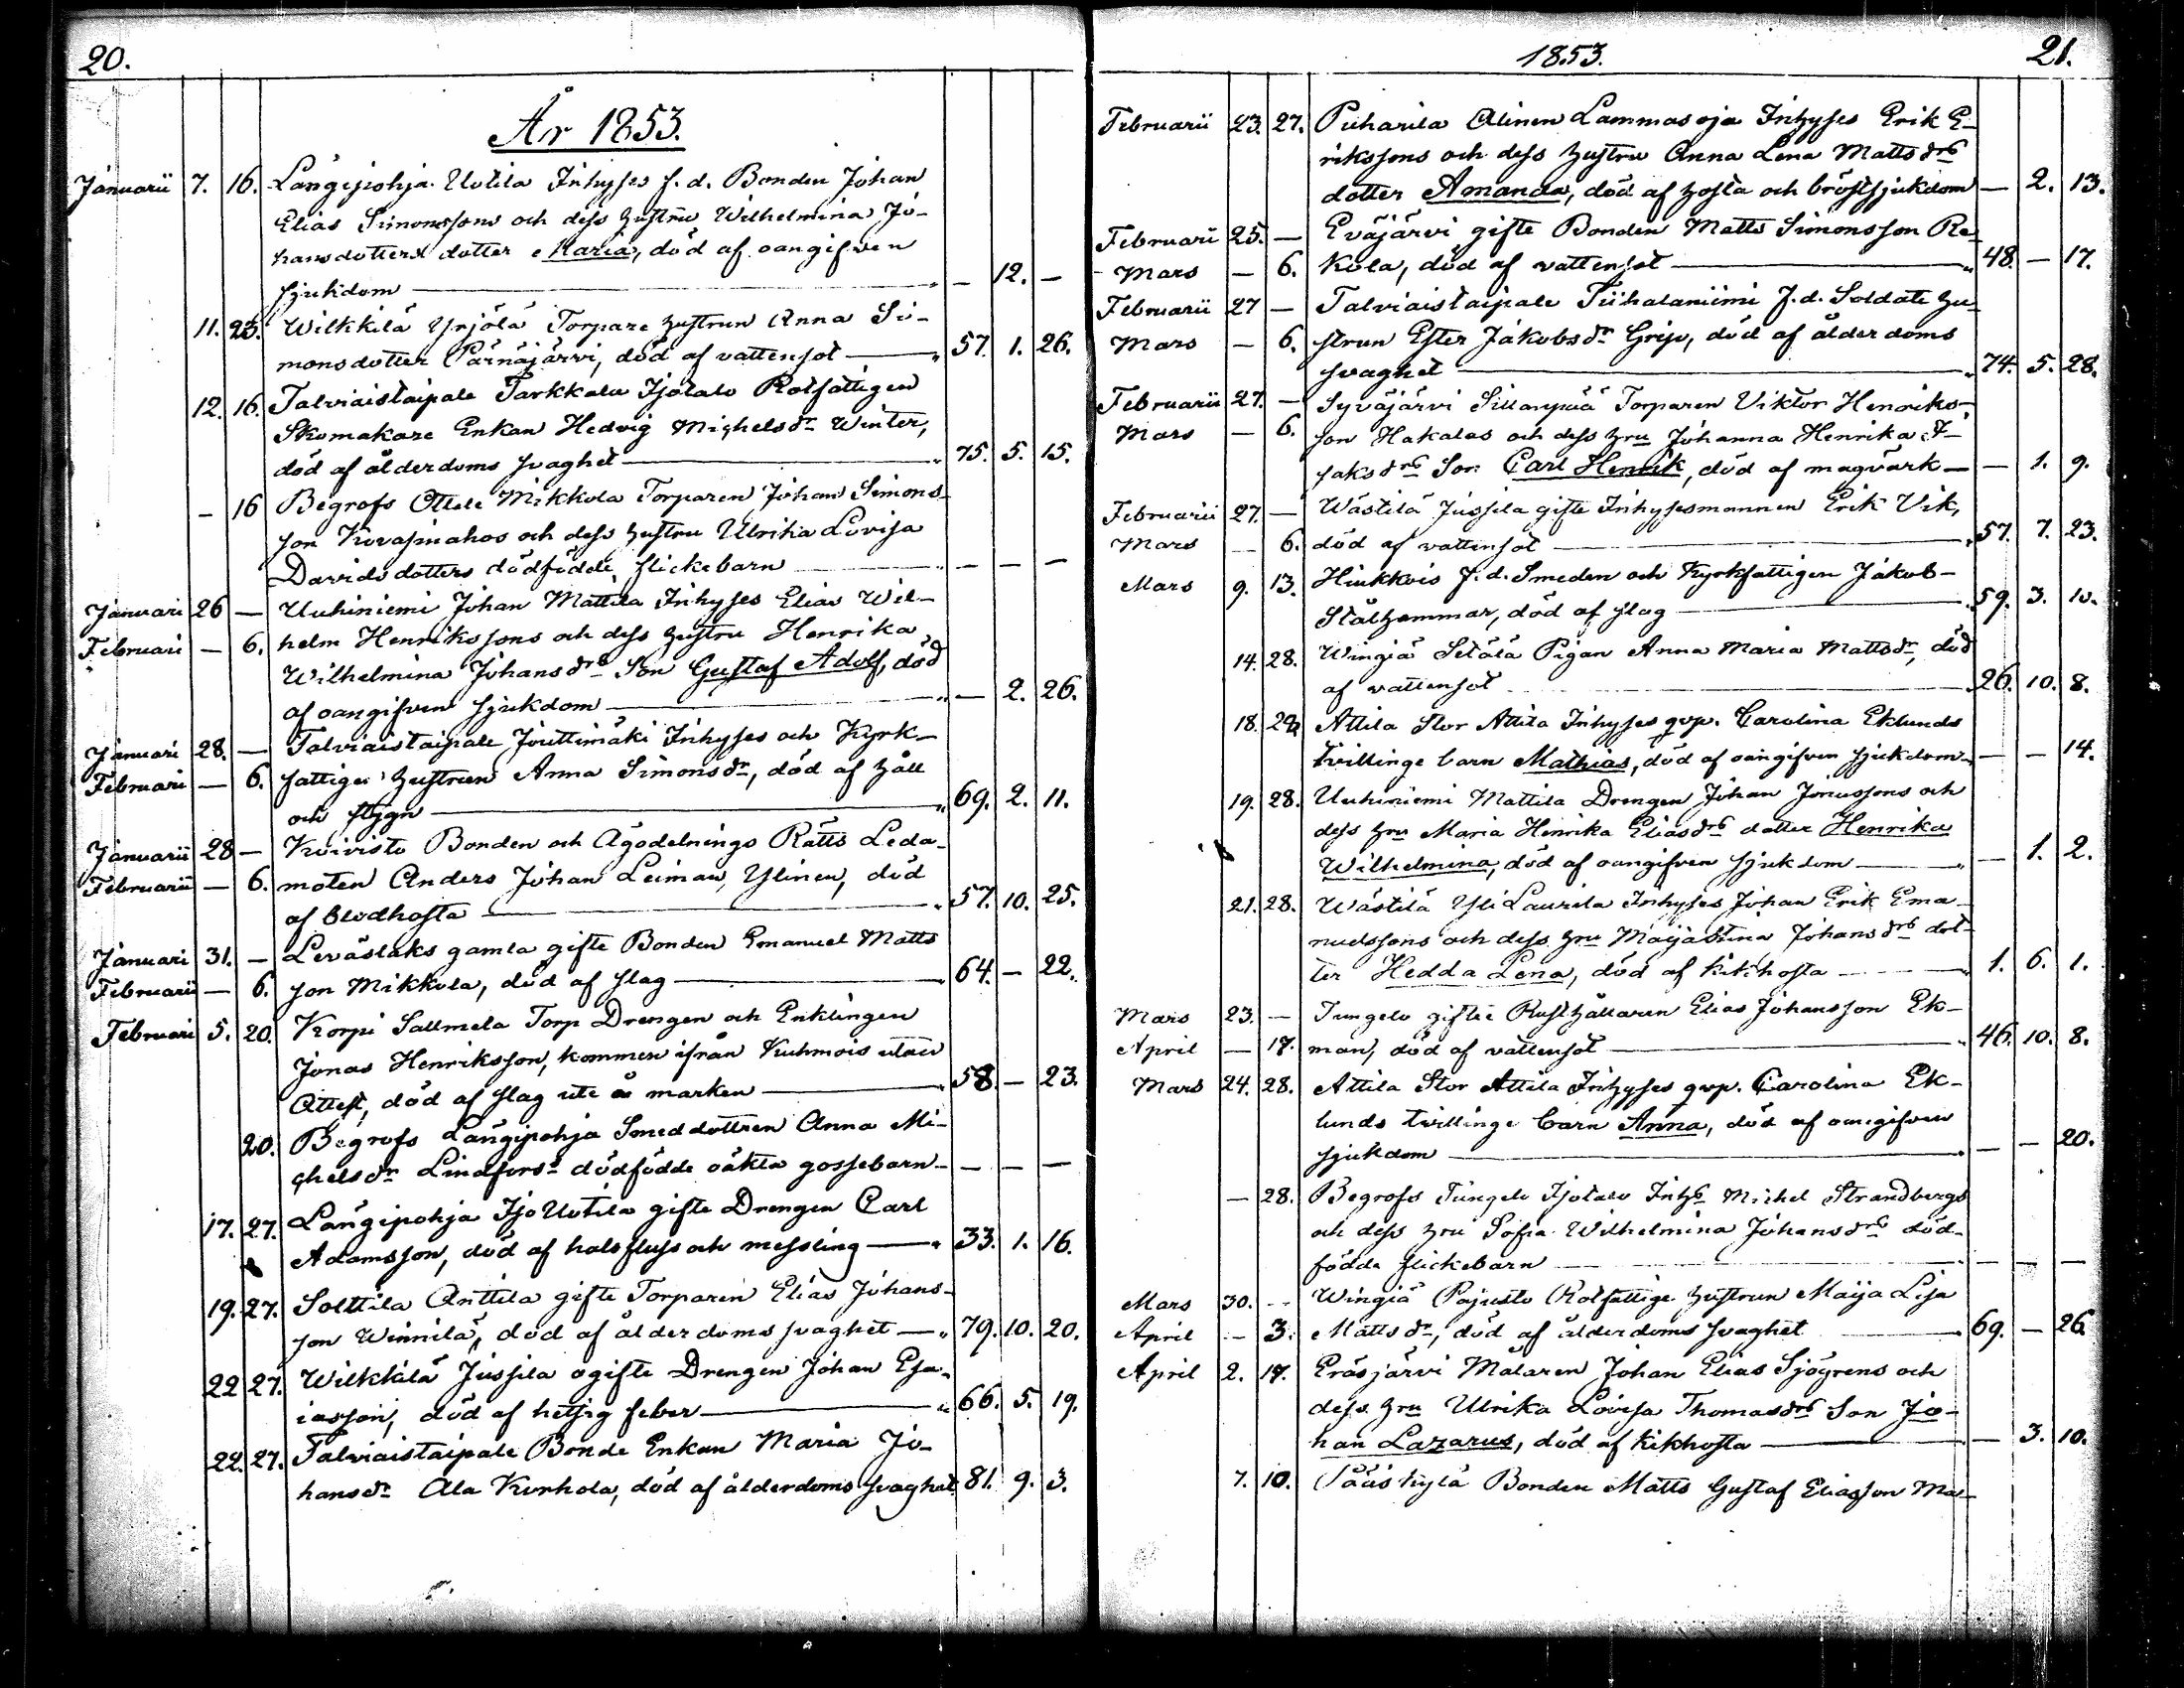 20.
År 1853.
Januarii 7. 16. Långipohja Uotila Inhyses f. d. Bonden Johan
Elias Simonssons och dess hustru Wilhelmina Jo-
hansdotters dotter Maria, död af oangifven
sjukdom — 12. —
11. 23. Wilkkilä Yrjölä Torpare hustrun Anna Si-
monsdotter Pärnäjärvi, död af vattensot 57. 1. 26.
12. 16. Talviaistaipale Tarkkala Isotalo Rotfattigen
Skomakare Enkan Hedvig Michelsdr Winter,
död af ålderdoms svaghet 75. 5. 15.
— 16 Begrofs Ottele Mikkola Torparen Johan Simons-
son Kovasinahos och dess hustru Ulrika Lovisa
Davidsdotters dödfödde flickebarn — — —
Januari 26 — Uuhiniemi Johan Mattila Inhyses Elias Wil-
Februari — 6. helm Henrikssons och dess hustru Henrika
Wilhelmina Johansdrs Son Gustaf Adolf, död
af oangifven sjukdom — 2. 26.
Januari 28. — Talviaistaipale Jouttimäki Inhyses och Kyrk-
Februari — 6. fattige hustrun Anna Simonsdr, död af håll
och stygn 69. 2. 11.
Januarii 28 — Koivisto Bonden och Ägodelnings Rätts Leda-
Februarii — 6. moten Anders Johan Leiman, Ylinen, död
af blodhosta 57. 10. 25.
Januari 31. — Leväslaks gamla gifte Bonden Emanuel Matts
Februarii — 6. son Mikkola, död af slag 64. — 22.
Februari 5. 20. Korpi Sallmela Torp Drengen och Enklingen
Jonas Henriksson, kommen ifrån Kuhmois utan
Attest, död af slag ute å marken 58. — 23.
20. Begrofs Långipohja Smeddottren Anna Mi-
chelsdr Lindfors's dödfödde oäkta gossebarn — — —
17. 27. Långipohja Iso Uotila gifte Drengen Carl
Adamsson, död af halsfluss och messling 33. 1. 16.
19. 27. Solttila Anttila gifte Torparen Elias Johans-
son Winnilä, död af ålderdoms svaghet 79. 10. 20.
22 27. Wilkkilä Jussila ogifte Drengen Johan Esa-
iasson, död af hetsig feber 66. 5. 19.
22. 27. Talviaistaipale Bonde Enkan Maria Jo-
hansdr Ala Korhola, död af ålderdoms svaghet 81. 9. 3.
1853. 21.
Februarii 23. 27. Puharila Alinen Lammasoja Inhyses Erik E-
rikssons och dess hustru Anna Lena Mattsdrs
dotter Amanda, död af hosta och bröstsjukdom — 2. 13.
Februari 25. — Eväjärvi gifte Bonden Matts Simonsson Re-
Mars — 6. kola, död af vattensot 48. — 17.
Februarii 27 — Talviaistaipale Tiihalaniimi f. d. Soldate hu-
Mars — 6. strun Ester Jakobsdr Grip, död af ålderdoms
svaghet 74. 5. 28.
Februarii 27. — Syväjärvi Sillanpää Torparen Viktor Henriks-
Mars — 6. son Hakalas och dess hru Johanna Henrika I-
saksdrs Son Carl Henrik, död af magvärk — 1. 9.
Februarii 27. — Wästilä Jussila gifte Inhysesmannen Erik Vik,
Mars — 6. död af vattensot 57. 7. 23.
Mars 9. 13. Hiukkois f. d. Smeden och Kyrkfattigen Jakob
Stålhammar, död af slag 59. 3. 10.
14. 28. Wingiä Setälä Pigan Anna Maria Mattsdr, död
af vattensot 26. 10. 8.
18. 28. Attila Stor Attila Inhyses qvp. Carolina Eklunds
tvillinge barn Mathias, död af oangifven sjukdom — — 14.
19. 28. Uuhiniemi Mattila Drengen Johan Jonassons och
dess hru Maria Henrika Eliasdrs dotter Henrika
Wilhelmina, död af oangifven sjukdom — 1. 2.
21. 28. Wästilä Yli Laurila Inhyses Johan Erik Ema-
nuelssons och dess hru Maijastina Johansdrs dot-
ter Hedda Lena, död af kikhosta 1. 6. 1.
Mars 23. — Tungelo gifte Rusthållaren Elias Johansson Ek-
April — 17. man, död af vattensot 46. 10. 8.
Mars 24. 28. Attila Stor Attila Inhyses qvp. Carolina Ek-
lunds tvillinge barn Anna, död af oangifven
sjukdom — — 20.
— 28. Begrofs Tungelo Isotalo Inhs Michel Strandbergs
och dess hru Sofia Wilhelmina Johansdrs död-
födda flickebarn — — —
Mars 30. — Wingiä Pajusto Rotfattige hustrun Maija Lisa
April — 3. Mattsdr, död af ålderdoms svaghet 69. — 26.
April 2. 17. Eräsjärvi Målaren Johan Elias Sjögrens och
dess hru Ulrika Lovisa Thomasdrs Son Jo-
han Lazarus, död af kikhosta — 3. 10.
7. 10. Pääskylä Bonden Matts Gustaf Eliasson Mat-